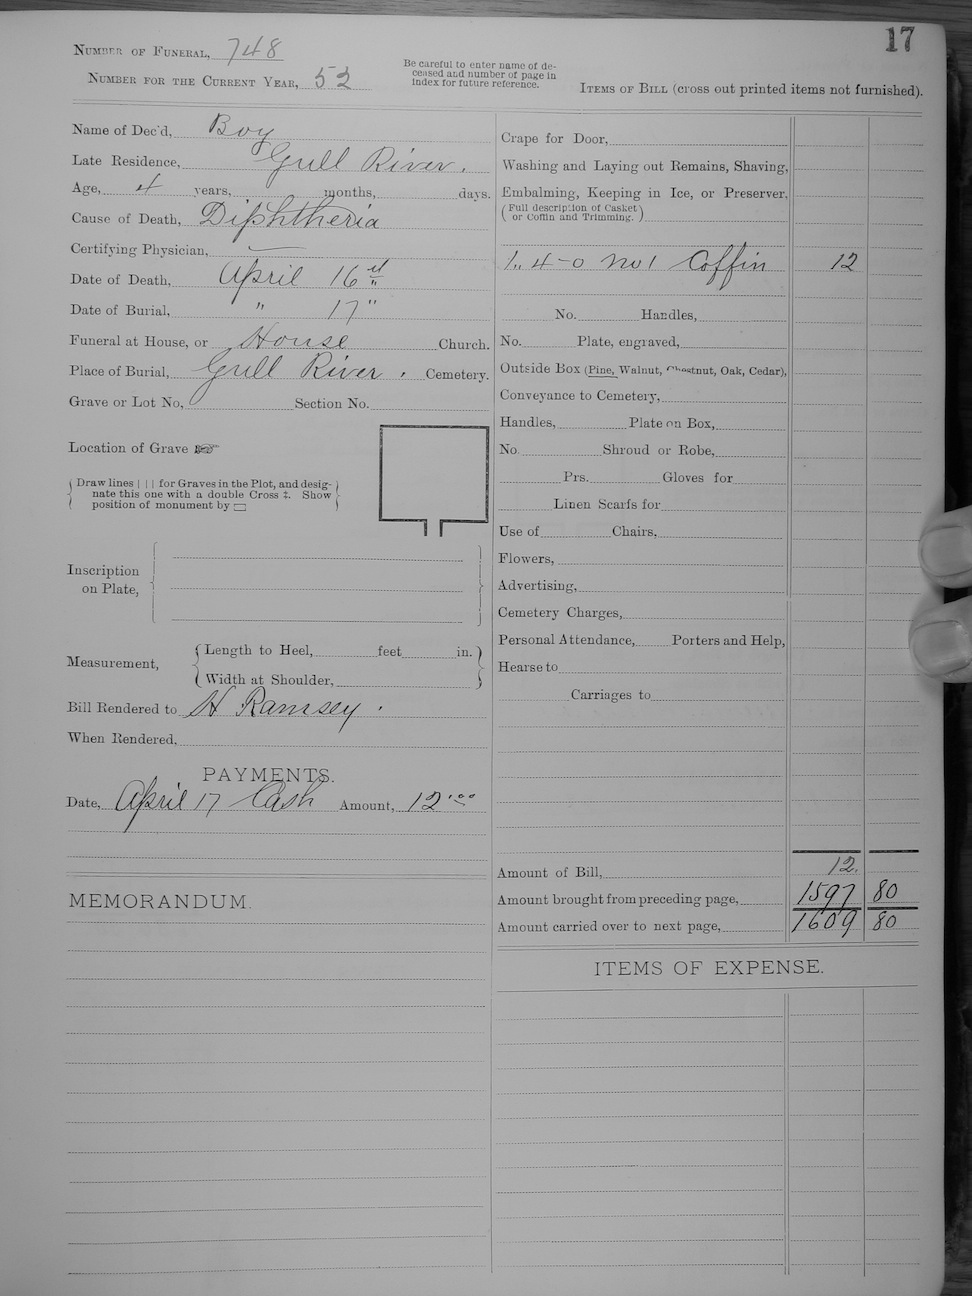 17
NUMBER OF FUNERAL, 748
NUMBER FOR THE CURRENT YEAR, 52
Be careful to enter name of de-
ceased and number of page in
index for future reference.
ITEMS OF BILL (cross out printed items not furnished).
Name of Dec'd, Boy
Late Residence, Grull River.
Age, 4 years, months, days.
Cause of Death, Diphtheria
Certifying Physician, —
Date of Death, April 16
Date of Burial, " 17"
Funeral at House, or House Church.
Place of Burial, Grull River. Cemetery.
Grave or Lot No, Section No.
Location of Grave ☞
Draw lines | | | for Graves in the Plot, and desig-
nate this one with a double Cross ‡. Show
position of monument by ▭
Inscription
on Plate,
Measurement,
Length to Heel, feet in.
Width at Shoulder,
Bill Rendered to H Ramsey.
When Rendered,
PAYMENTS.
Date, April 17 Cash Amount, 12.00
MEMORANDUM.
Crape for Door,
Washing and Laying out Remains, Shaving,
Embalming, Keeping in Ice, or Preserver,
(Full description of Casket
or Coffin and Trimming.)
1. 4-0 No 1 Coffin 12
No. Handles,
No. Plate, engraved,
Outside Box (Pine, Walnut, Chestnut, Oak, Cedar),
Conveyance to Cemetery,
Handles, Plate on Box,
No. Shroud or Robe,
Prs. Gloves for
Linen Scarfs for
Use of Chairs,
Flowers,
Advertising,
Cemetery Charges,
Personal Attendance, Porters and Help,
Hearse to
Carriages to
Amount of Bill, 12.
Amount brought from preceding page, 1597 80
Amount carried over to next page, 1609 80
ITEMS OF EXPENSE.